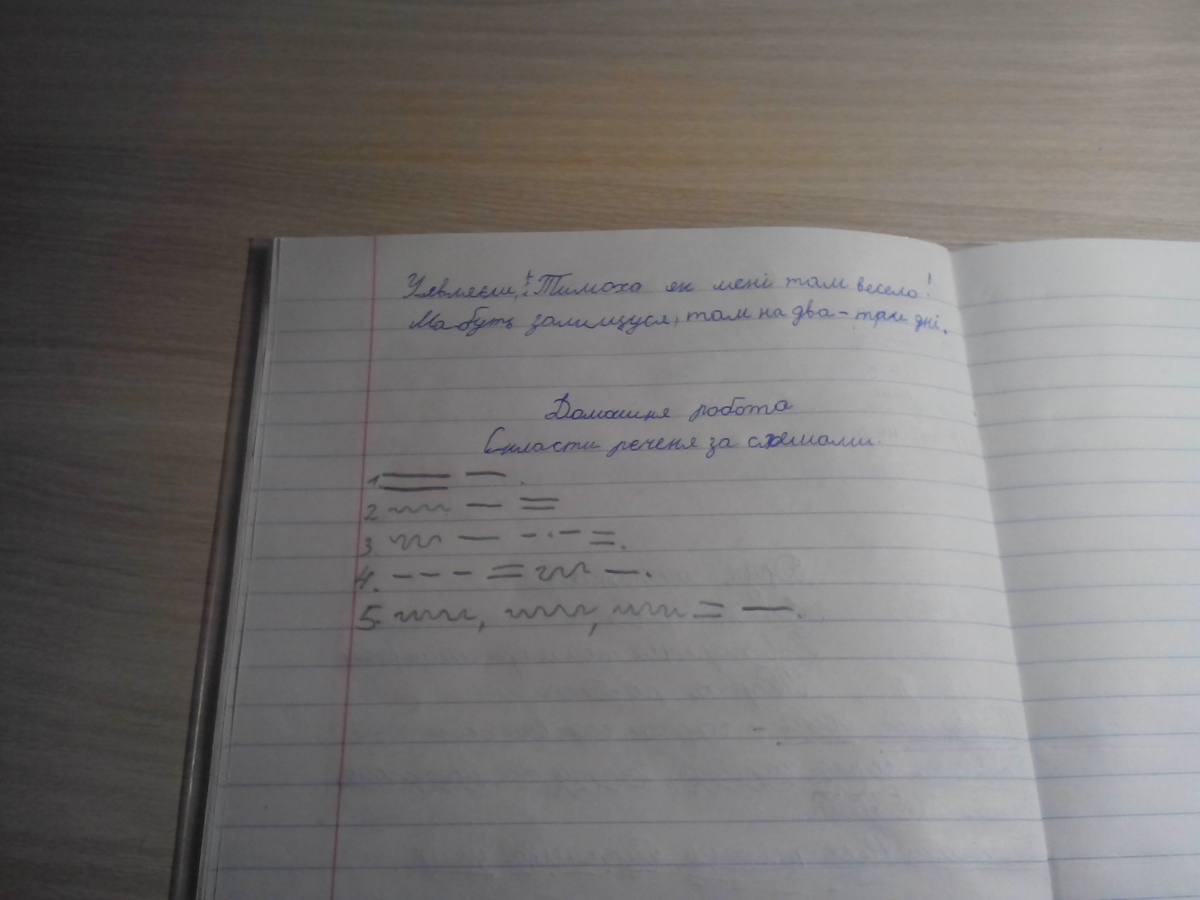 Уявляєш, Тимоха як мені там весело!
Мабуть залишуся, там на два-три дні.
Домашня робота
Скласти речення за схемами.
1.
2
3.
4.
5.